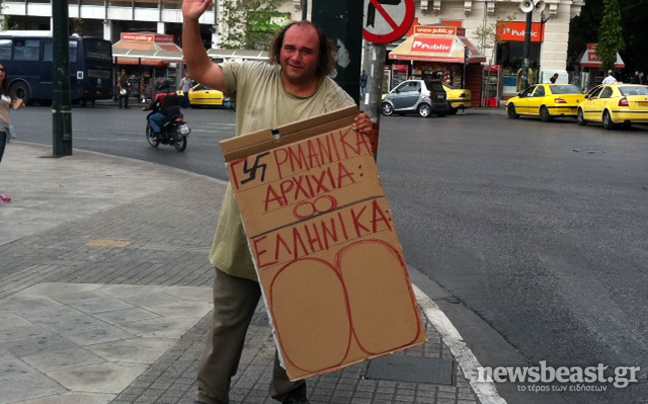 Public
Public
Public
Γ卐ΡΜΑΝΙΚΑ
ΑΡΧΙΧΙΑ:
ΕΛΛΗΝΙΚΑ:
newsbeast.gr
το τέρας των ειδήσεων